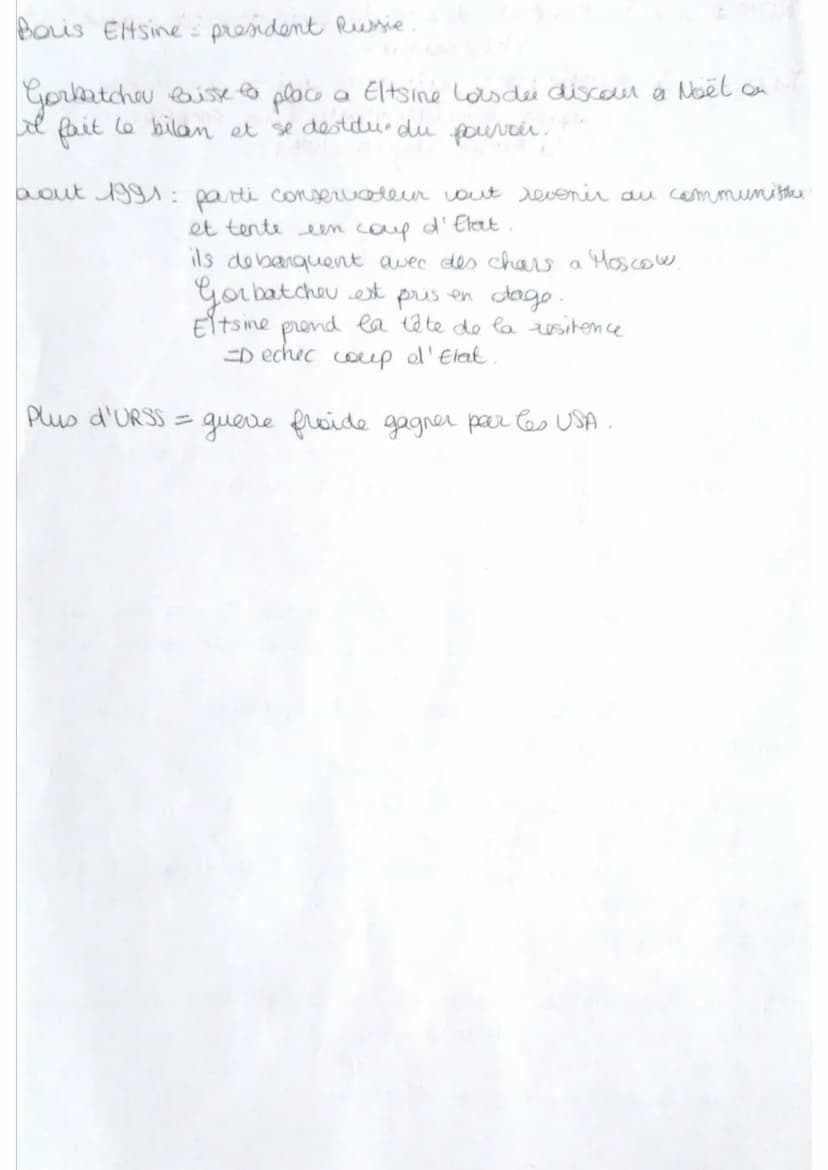 Boris Eltsine = president Russie.
Gorbatchev laisse la place a Eltsine lors du discour a Noël on
il fait le bilan et se destitue du pouvoir.
aout 1991 : parti conservateur veut revenir au communisme
et tente un coup d'Etat.
ils debarquent avec des chars a Moscow.
Gorbatchev est pris en otage.
Eltsine prend la tête de la resitence
=D echec coup d'Etat.
Plus d'URSS = guerre froide gagner par les USA.